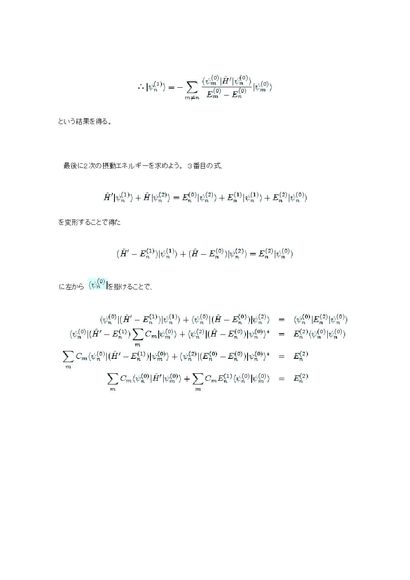 ∴ |ψ_n^(1)⟩ = − ∑_{m≠n} ⟨ψ_m^(0)|Ĥ'|ψ_n^(0)⟩ / (E_m^(0) − E_n^(0)) |ψ_m^(0)⟩
という結果を得る。
最後に2次の摂動エネルギーを求めよう。 3番目の式、
Ĥ'|ψ_n^(1)⟩ + Ĥ|ψ_n^(2)⟩ = E_n^(0)|ψ_n^(2)⟩ + E_n^(1)|ψ_n^(1)⟩ + E_n^(2)|ψ_n^(0)⟩
を変形することで得た
(Ĥ' − E_n^(1))|ψ_n^(1)⟩ + (Ĥ − E_n^(0))|ψ_n^(2)⟩ = E_n^(2)|ψ_n^(0)⟩
に左から ⟨ψ_n^(0)| を掛けることで、
⟨ψ_n^(0)|(Ĥ' − E_n^(1))|ψ_n^(1)⟩ + ⟨ψ_n^(0)|(Ĥ − E_n^(0))|ψ_n^(2)⟩ = ⟨ψ_n^(0)|E_n^(2)|ψ_n^(0)⟩
⟨ψ_n^(0)|(Ĥ' − E_n^(1)) ∑_m C_m|ψ_m^(0)⟩ + ⟨ψ_n^(2)|(Ĥ − E_n^(0))|ψ_n^(0)⟩* = E_n^(2)⟨ψ_n^(0)|ψ_n^(0)⟩
∑_m C_m⟨ψ_n^(0)|(Ĥ' − E_n^(1))|ψ_m^(0)⟩ + ⟨ψ_n^(2)|(E_n^(0) − E_n^(0))|ψ_n^(0)⟩* = E_n^(2)
∑_m C_m⟨ψ_n^(0)|Ĥ'|ψ_m^(0)⟩ + ∑_m C_m E_n^(1)⟨ψ_n^(0)|ψ_m^(0)⟩ = E_n^(2)